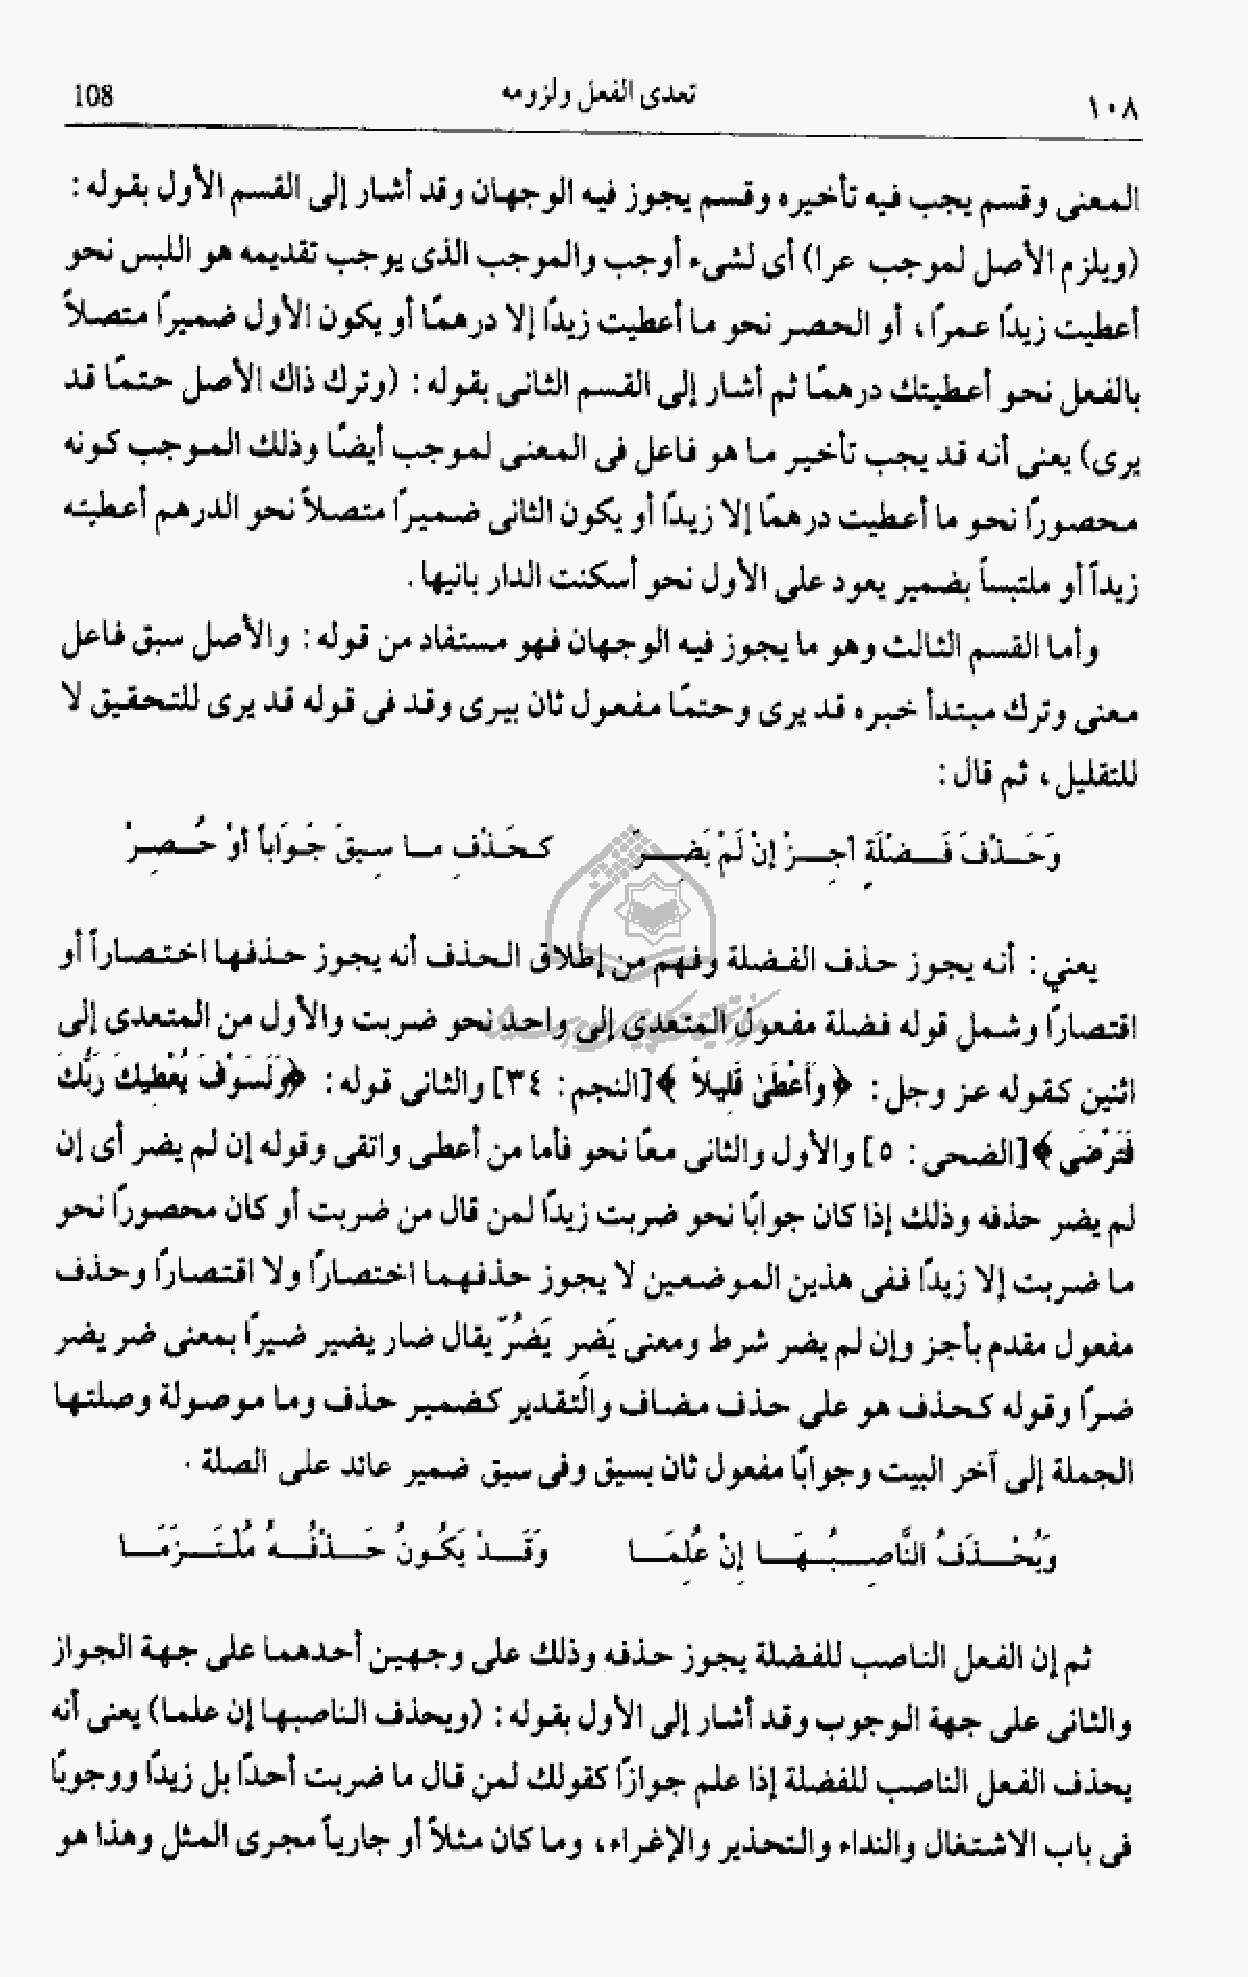 ١٠٨ تعدى الفعل ولزومه 108
المعنى وقسم يجب فيه تأخيره وقسم يجوز فيه الوجهان وقد أشار إلى القسم الأول بقوله :
(ويلزم الأصل لموجب عرا) أى لشىء أوجب والموجب الذى يوجب تقديمه هو اللبس نحو
أعطيت زيداً عمراً ، أو الحصر نحو ما أعطيت زيداً إلا درهماً أو يكون الأول ضميراً متصلاً
بالفعل نحو أعطيتك درهماً ثم أشار إلى القسم الثانى بقوله : (وترك ذاك الأصل حتماً قد
يرى) يعنى أنه قد يجب تأخير ما هو فاعل فى المعنى لموجب أيضاً وذلك الموجب كونه
محصوراً نحو ما أعطيت درهماً إلا زيداً أو يكون الثانى ضميراً متصلاً نحو الدرهم أعطيته
زيداً أو ملتبساً بضمير يعود على الأول نحو أسكنت الدار بانيها .
وأما القسم الثالث وهو ما يجوز فيه الوجهان فهو مستفاد من قوله : والأصل سبق فاعل
معنى وترك مبتدأ خبره قد يرى وحتماً مفعول ثان بيرى وقد فى قوله قد يرى للتحقيق لا
للتقليل ، ثم قال :
وَحَـذْفَ فَـضْلَةٍ أجِـزْ إنْ لَمْ يَضِـرْ كَـحَـذْفِ مـا سِـيقَ جَـوَاباً أوْ حُـصِـرْ
يعني : أنه يجوز حذف الفضلة وفهم من إطلاق الحذف أنه يجوز حذفها اختصاراً أو
اقتصاراً وشمل قوله فضلة مفعول المتعدى إلى واحد نحو ضربت والأول من المتعدى إلى
اثنين كقوله عز وجل : ﴿وَأَعْطَىٰ قَلِيلاً ﴾[النجم : ٣٤] والثانى قوله : ﴿وَلَسَوْفَ يُعْطِيكَ رَبُّكَ
فَتَرْضَى ﴾[الضحى : ٥] والأول والثانى معاً نحو فأما من أعطى واتقى وقوله إن لم يضر أى إن
لم يضر حذفه وذلك إذا كان جواباً نحو ضربت زيداً لمن قال من ضربت أو كان محصوراً نحو
ما ضربت إلا زيداً ففى هذين الموضعين لا يجوز حذفهما اختصاراً ولا اقتصاراً وحذف
مفعول مقدم بأجز وإن لم يضر شرط ومعنى يَضِر يَضُرّ يقال ضار يضير ضيراً بمعنى ضر يضر
ضراً وقوله كحذف هو على حذف مضاف والتقدير كضمير حذف وما موصولة وصلتها
الجملة إلى آخر البيت وجواباً مفعول ثان بسيق وفى سيق ضمير عائد على الصلة .
وَيُحْـذَفُ النَّاصِـبُـهَـا إنْ عُلِمَـا وَقَـدْ يَكُـونُ حَـذْفُـهُ مُلْتَـزَمَـا
ثم إن الفعل الناصب للفضلة يجوز حذفه وذلك على وجهين أحدهما على جهة الجواز
والثانى على جهة الوجوب وقد أشار إلى الأول بقوله : (ويحذف الناصبها إن علما) يعنى أنه
يحذف الفعل الناصب للفضلة إذا علم جوازاً كقولك لمن قال ما ضربت أحداً بل زيداً ووجوباً
فى باب الاشتغال والنداء والتحذير والإغراء، وما كان مثلاً أو جارياً مجرى المثل وهذا هو